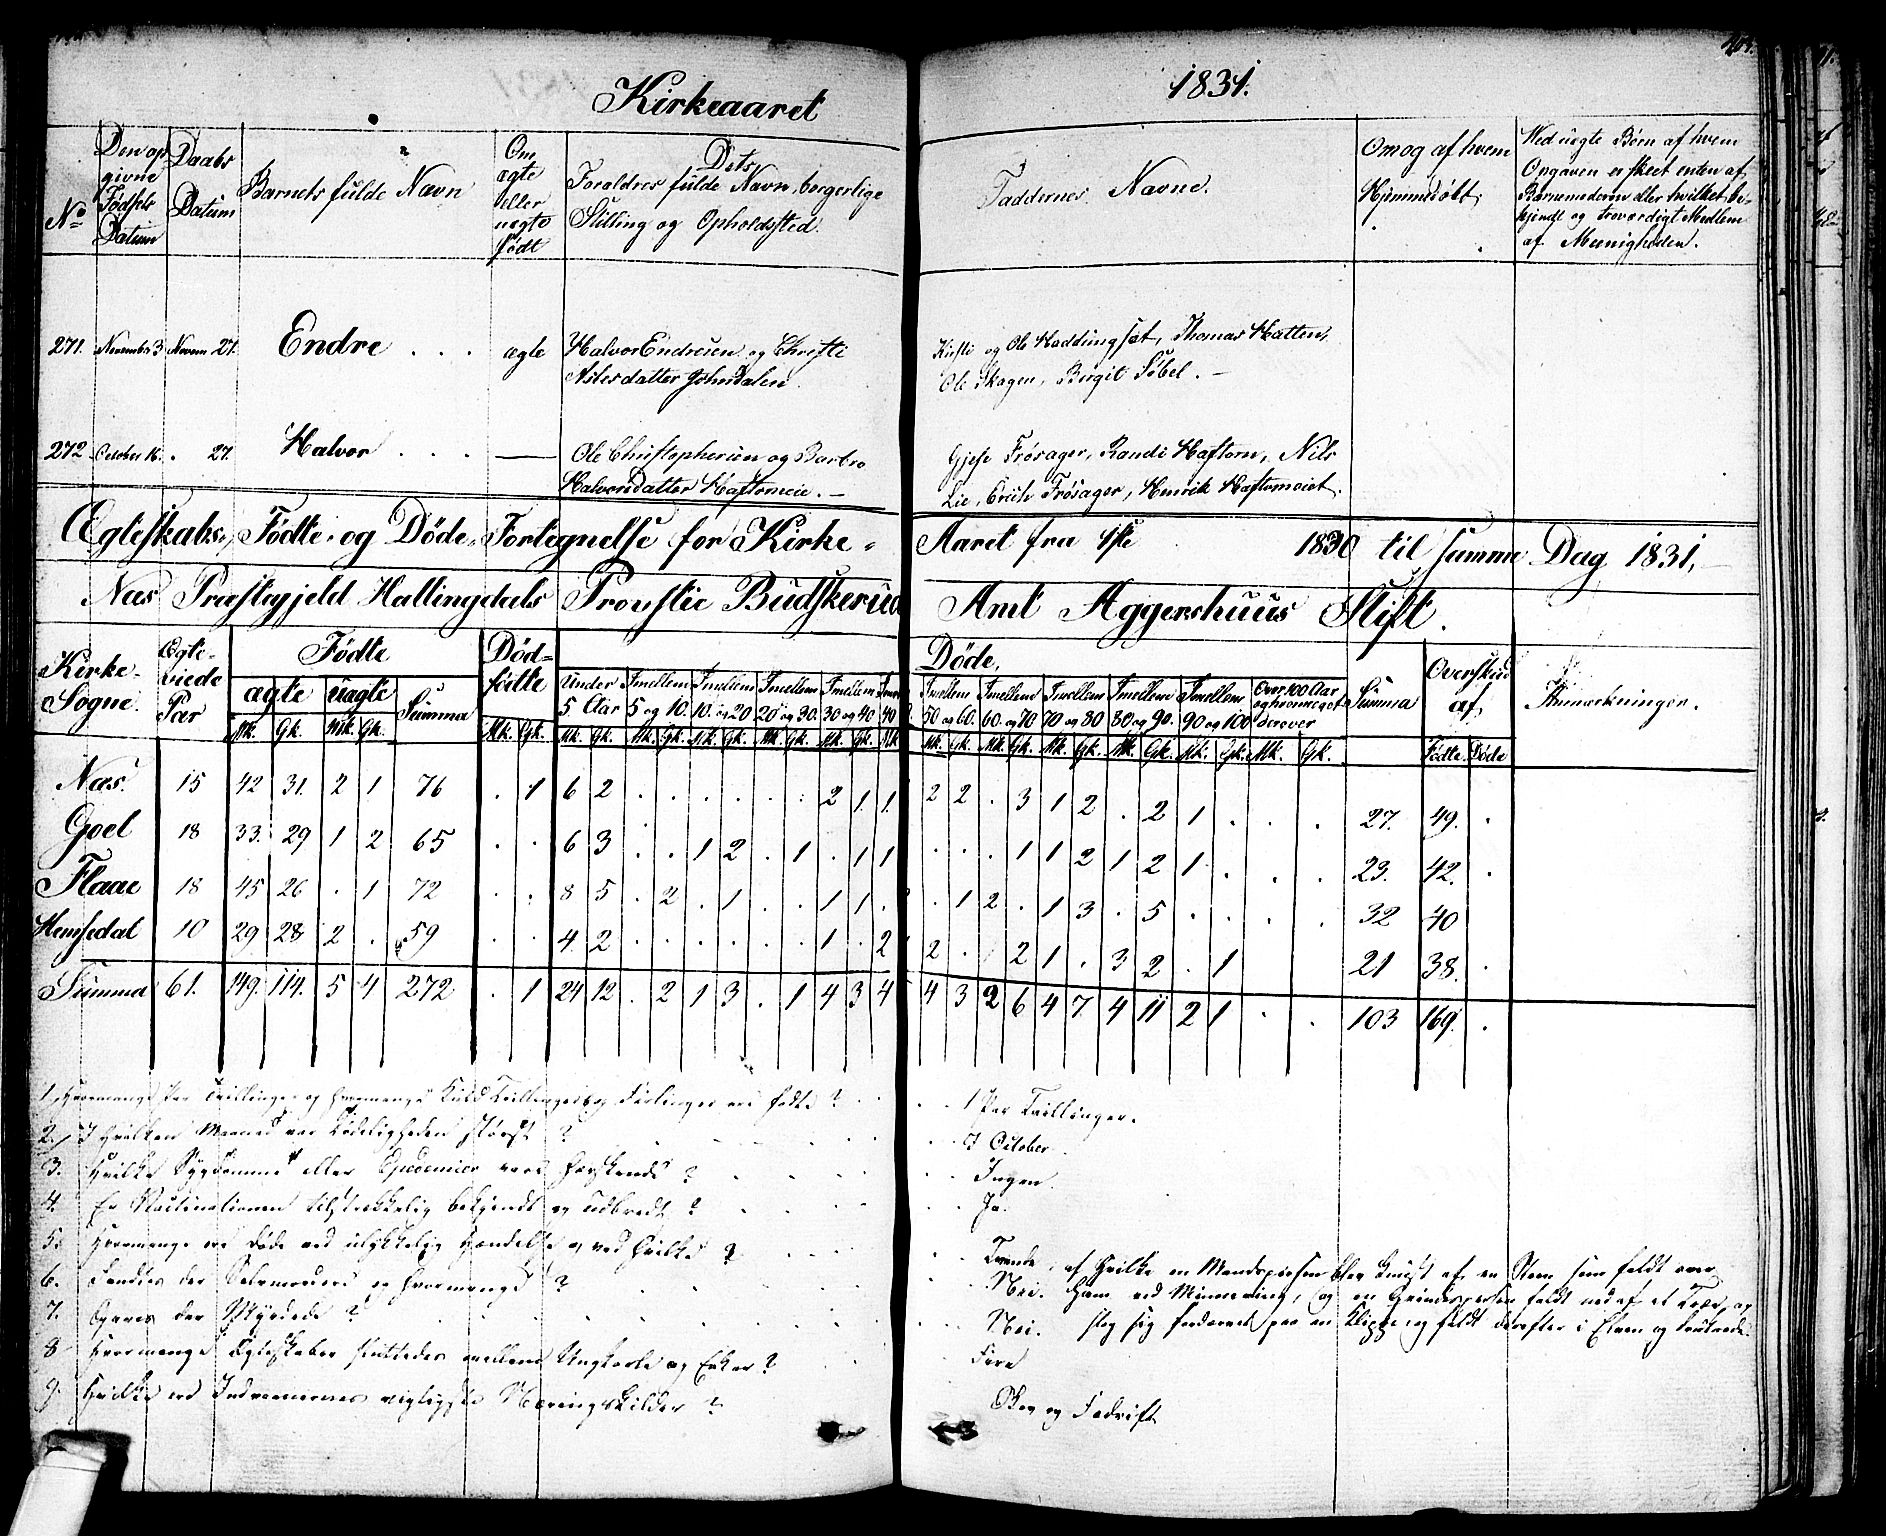 Kirkeaaret 1831.
No | Den op givne Fødsels Datum | Daabs Datum | Barnets fulde Navn | Om ægte eller uægte født | Dets Foraldres fulde Navn, borgerlige Stilling og Opholdssted. | Faddernes Navne. | Om og af hvem Hjemmedøbt. | Wed uægte Børn af hvem Opgaven er skeet enten af Barnemoderen eller hvilket be- kjendt og troværdigt Medlem af Meenigheden.
271. | November 3 | Novem 27. | Endre | ægte | Halvor Endresen og Christi | Kirsti og Ole Haddingsæt, Thomas Hatten,
Asles datter Johndalen. | Ole Skagen, Birgit Søbel. –
272. | October 16. | . 27. | Halvor | — | Ole Christophersen og Barbro | Gjese Frøsager, Randi Haftorn, Nils
Halvorsdatter Haftorneie. – | Lie, Frøsager, Henrik Haftorneiet.
Ægteskabs, Fødte- og Døde-Fortegnelse for Kirke- Aaret fra 1ste 1830 til samme Dag 1831,
Næs Præstegjeld Hallingdals Provstie Budskerud Amt Aggershuus Stift.
Kirke- Sogne | Ægte- viede Par | Fødte | Død- fødte | Døde, | Summa | Overskud af, | Anmærkninger.
ægte | uægte | Summa | Under 5 Aar | Imellem 5 og 10. | Imellem 10. og 20 | Imellem 20 og 30. | Imellem 30 og 40 | 40 | Imellem 50 og 60. | Imellem 60. og 70 | Imellem 70 og 80 | Imellem 80 og 90. | Imellem 90 og 100 | Over 100 Aar og hvormeget derover
Mk. Gk. Mk. Gk. | Mk. Gk. | Mk. Gk. Mk. Gk. Mk. Gk. Mk. Gk. Mk. Gk. Mk | Mk. Gk. Mk. Gk. Mk. Gk. Mk. Gk. Mk. Gk. Mk. Gk. | Fødte. Døde
Næs. 15 42 31. 2 1 76 . 1 6 2 . . . . . . 2 1. 1. 2 2 . 3 1 2 . 2 1 . . . 27. 49. .
Goel 18 33. 29 1 2 65 . . 6 3 . . 1 2 . 1 . 1 1 . . . 1 1 2 1 2 1 . . . 23. 42. .
Flaae 18 45 26 . 1 72 . . 8 5 . 2 . 1 . . 1 1 . . 1 2 . 1 3 . 5 . . . . 32 40
Hemsedal 10 29 28 2 . 59 . . 4 2 . . . . . . 1 . 2 2 . . 2 1 . 3 2 . 1 21 38. .
Summa 61. 149. 114. 5 4 272 . 1 24 12 . 2 1 3 . 1 4 3 4 4 3 2 6 4 7. 4 11 2 1 . . 103 169. .
1, Hvormange Par Tvillinger og hvormange Kuld Trillinger og Fiirlinger ere fødte? 1 Par Tvillinger.
2. I hvilken Maaned var Dødeligheden størst? I October.
3. Hvilke Sygdomme eller Epidemier vare herskende? Ingen.
4. Er Vaccinationen tilstrækkelig bekjendt og udbredt? Ja.
5. Hvormange ere døde ved ulykkelig Hændelse og ved hvilke? Tvende, af hvilke en Mandsperson blev knust af en Steen som faldt over
6. Fandtes der Selvmordere og hvormange? Nei. ham ved Minnering, og en Qvindesperson faldt ned af et Træ og
7. Gaves der Myrdede? Nei. slog sig fordærvet paa en Klippe og faldt derefter i Elven og druknede.
8 Hvormange Ægteskaber sluttedes mellem Ungkarle og Enker? Fire
9. Hvilke ere Indvaanernes vigtigste Næringskilder? Bov og Fædrift